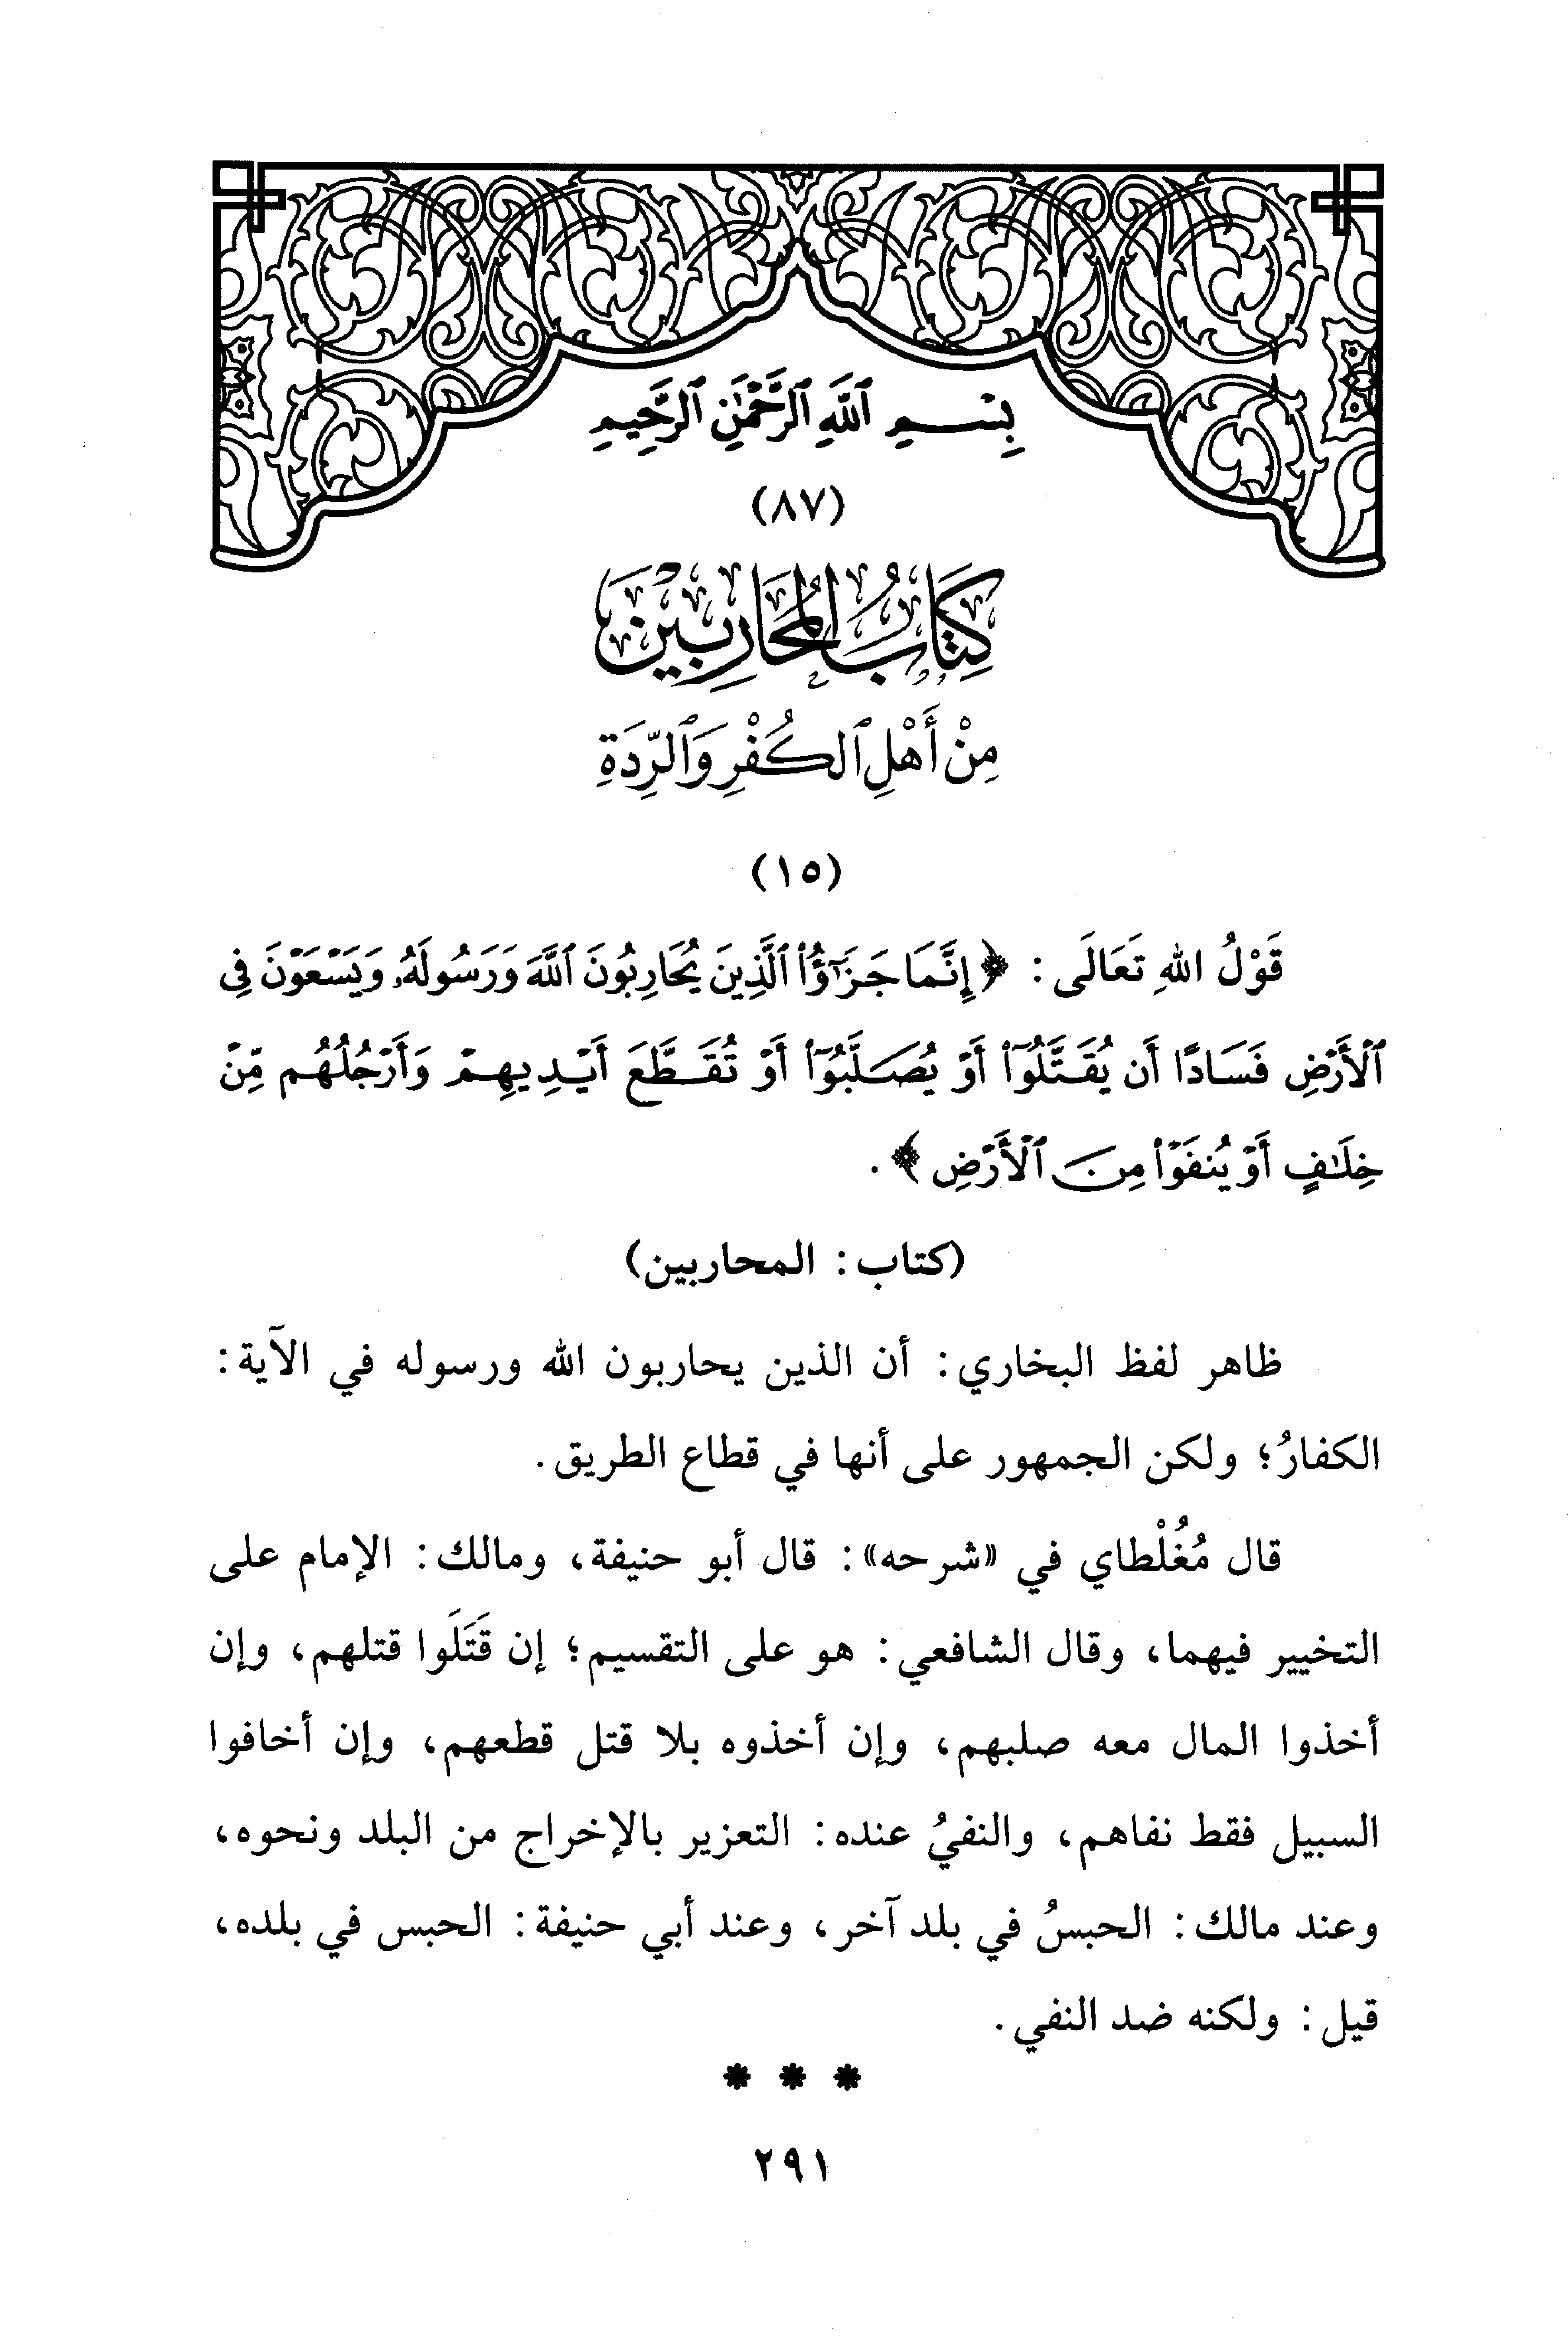 بِسْمِ ٱللَّهِ ٱلرَّحْمَٰنِ ٱلرَّحِيمِ
(٨٧)
كِتَابُ المُحَارِبِيْنَ
مِنْ أَهْلِ ٱلكُفْرِ وَٱلرِّدَةِ
(١٥)
قَوْلُ اللهِ تَعَالَى: ﴿إِنَّمَا جَزَٰٓؤُا۟ ٱلَّذِينَ يُحَارِبُونَ ٱللَّهَ وَرَسُولَهُۥ وَيَسْعَوْنَ فِى
ٱلْأَرْضِ فَسَادًا أَن يُقَتَّلُوٓا۟ أَوْ يُصَلَّبُوٓا۟ أَوْ تُقَطَّعَ أَيْدِيهِمْ وَأَرْجُلُهُم مِّنْ
خِلَٰفٍ أَوْ يُنفَوْا۟ مِنَ ٱلْأَرْضِ﴾.
(كتاب: المحاربين)
ظاهر لفظ البخاري: أن الذين يحاربون الله ورسوله في الآية:
الكفارُ؛ ولكن الجمهور على أنها في قطاع الطريق.
قال مُغُلْطاي في «شرحه»: قال أبو حنيفة، ومالك: الإمام على
التخيير فيهما، وقال الشافعي: هو على التقسيم؛ إن قَتَلَوا قتلهم، وإن
أخذوا المال معه صلبهم، وإن أخذوه بلا قتل قطعهم، وإن أخافوا
السبيل فقط نفاهم، والنفيُ عنده: التعزير بالإخراج من البلد ونحوه،
وعند مالك: الحبسُ في بلد آخر، وعند أبي حنيفة: الحبس في بلده،
قيل: ولكنه ضد النفي.
* * *
٢٩١